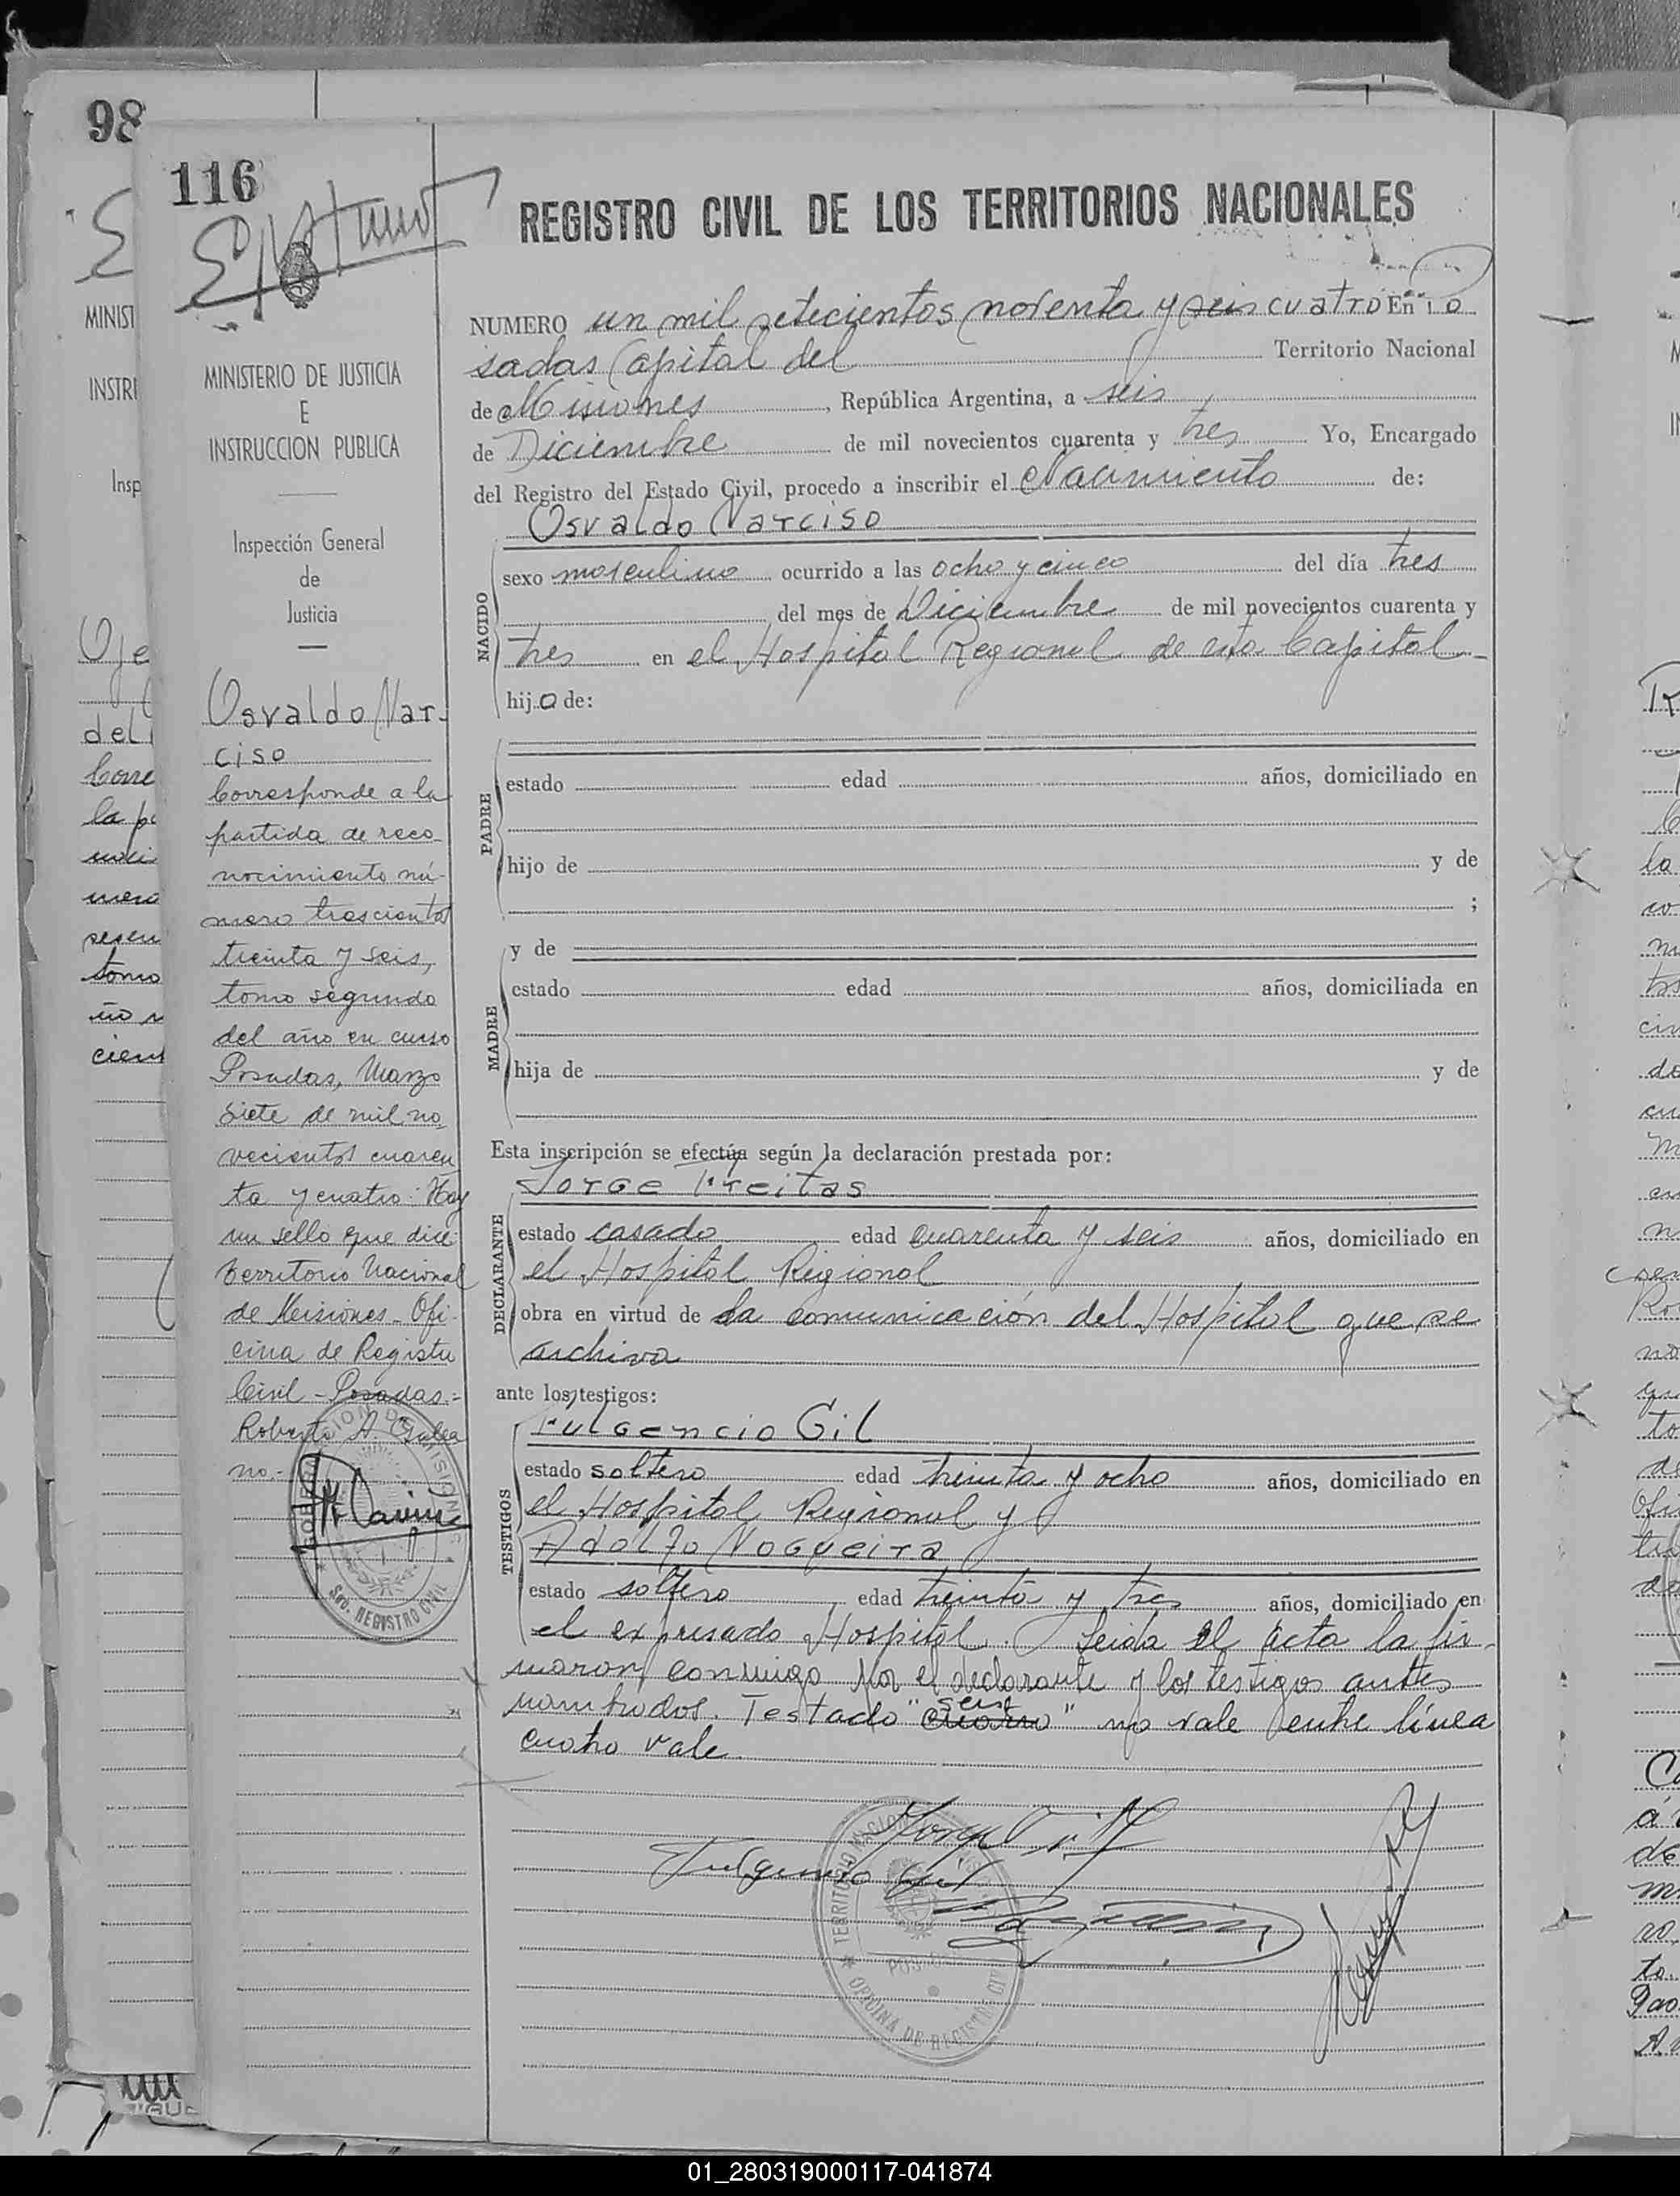 98
116
MINISTERIO DE JUSTICIA
E
INSTRUCCION PUBLICA
Inspección General
de
Justicia
Osvaldo Nar-
ciso
Corresponde a la
partida de reco
nocimiento nú-
mero trescientos
treinta y seis,
tomo segundo
del año en curso
Posadas, Marzo
siete de mil no
vecientos cuaren
ta y cuatro: Hay
un sello que dice:
Territorio Nacional
de Misiones - Ofi-
cina de Registro
Civil - Posadas.-
Roberto A. Galea
no.-
REGISTRO CIVIL DE LOS TERRITORIOS NACIONALES
NUMERO un mil setecientos noventa y seis cuatro En Po
sadas Capital del Territorio Nacional
de Misiones, República Argentina, a seis
de Diciembre de mil novecientos cuarenta y tres Yo, Encargado
del Registro del Estado Civil, procedo a inscribir el Nacimiento de:
Osvaldo Narciso
NACIDO
sexo masculino ocurrido a las ocho y cinco del día tres
del mes de Diciembre de mil novecientos cuarenta y
tres en el Hospital Regional de esta Capital
hijo de:
PADRE
estado edad años, domiciliado en
hijo de y de
;
MADRE
y de
estado edad años, domiciliada en
hija de y de
Esta inscripción se efectúa según la declaración prestada por:
Jorge Freitas
DECLARANTE
estado casado edad cuarenta y seis años, domiciliado en
el Hospital Regional
obra en virtud de la comunicación del Hospital que se
archiva
ante los testigos:
Fulgencio Gil
TESTIGOS
estado soltero edad treinta y ocho años, domiciliado en
el Hospital Regional y
Adolfo Nogueira
estado soltero edad treinta y tres años, domiciliado en
el expresado Hospital. Leida el acta la fir-
maron conmigo el declarante y los testigos antes
nombrados. Testado "seis" no vale entre línea
cuatro vale.
Fulgencio Gil
TERRITORIO NACIONAL
POSADAS
OFICINA DE REGISTRO CIVIL
01_280319000117-041874